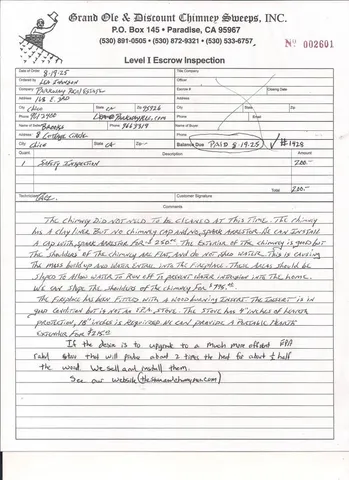 Grand Ole & Discount Chimney Sweeps, INC.
P.O. Box 145 • Paradise, CA 95967
(530) 891-0505 • (530) 872-9321 • (530) 533-6757
Nº 002601
Level I Escrow Inspection
Date of Order 8-19-25 Title Company
Ordered by Lea Johnson Officer
Company Parkway Real Estate Escrow # Closing Date
Address 168 E. 3rd Address
City Chico State CA Zip 95926 City State Zip
Phone Phone Email
Name of Seller Brooks Name of Buyer
Address 8 Cottage Circle Phone
City Chico State CA Zip Balance Due PAID 8-19-25 ✓ #1928
Quant Description Amount
1 Safety Inspection 200.-
Total 200.-
Technician Customer Signature
Comments
The chimney did not need to be cleaned at this time. The chimney
has a clay liner but no chimney cap and no spark arrestor. We can install
a cap with spark arrestor for $250.00. The exterior of the chimney is good but
the shoulders of the chimney are flat and do not shed water. This is causing
the moss build up and water entry into the fireplace. These areas should be
sloped to allow water to run off to prevent water intrusion into the home.
We can slope the shoulders of the chimney for $
The fireplace has been fitted with a wood burning insert. The insert is in
good condition but is not an EPA stove. The stove has 9" inches of hearth
protection, 18" inches is required. We can provide a portable hearth
extension for $275.00
If the desire is to upgrade to a much more efficient EPA
rated stove that will produce about 2 times the heat for about ½ half
the wood. We sell and install them.
See our website (thestoveandchimneyman.com)